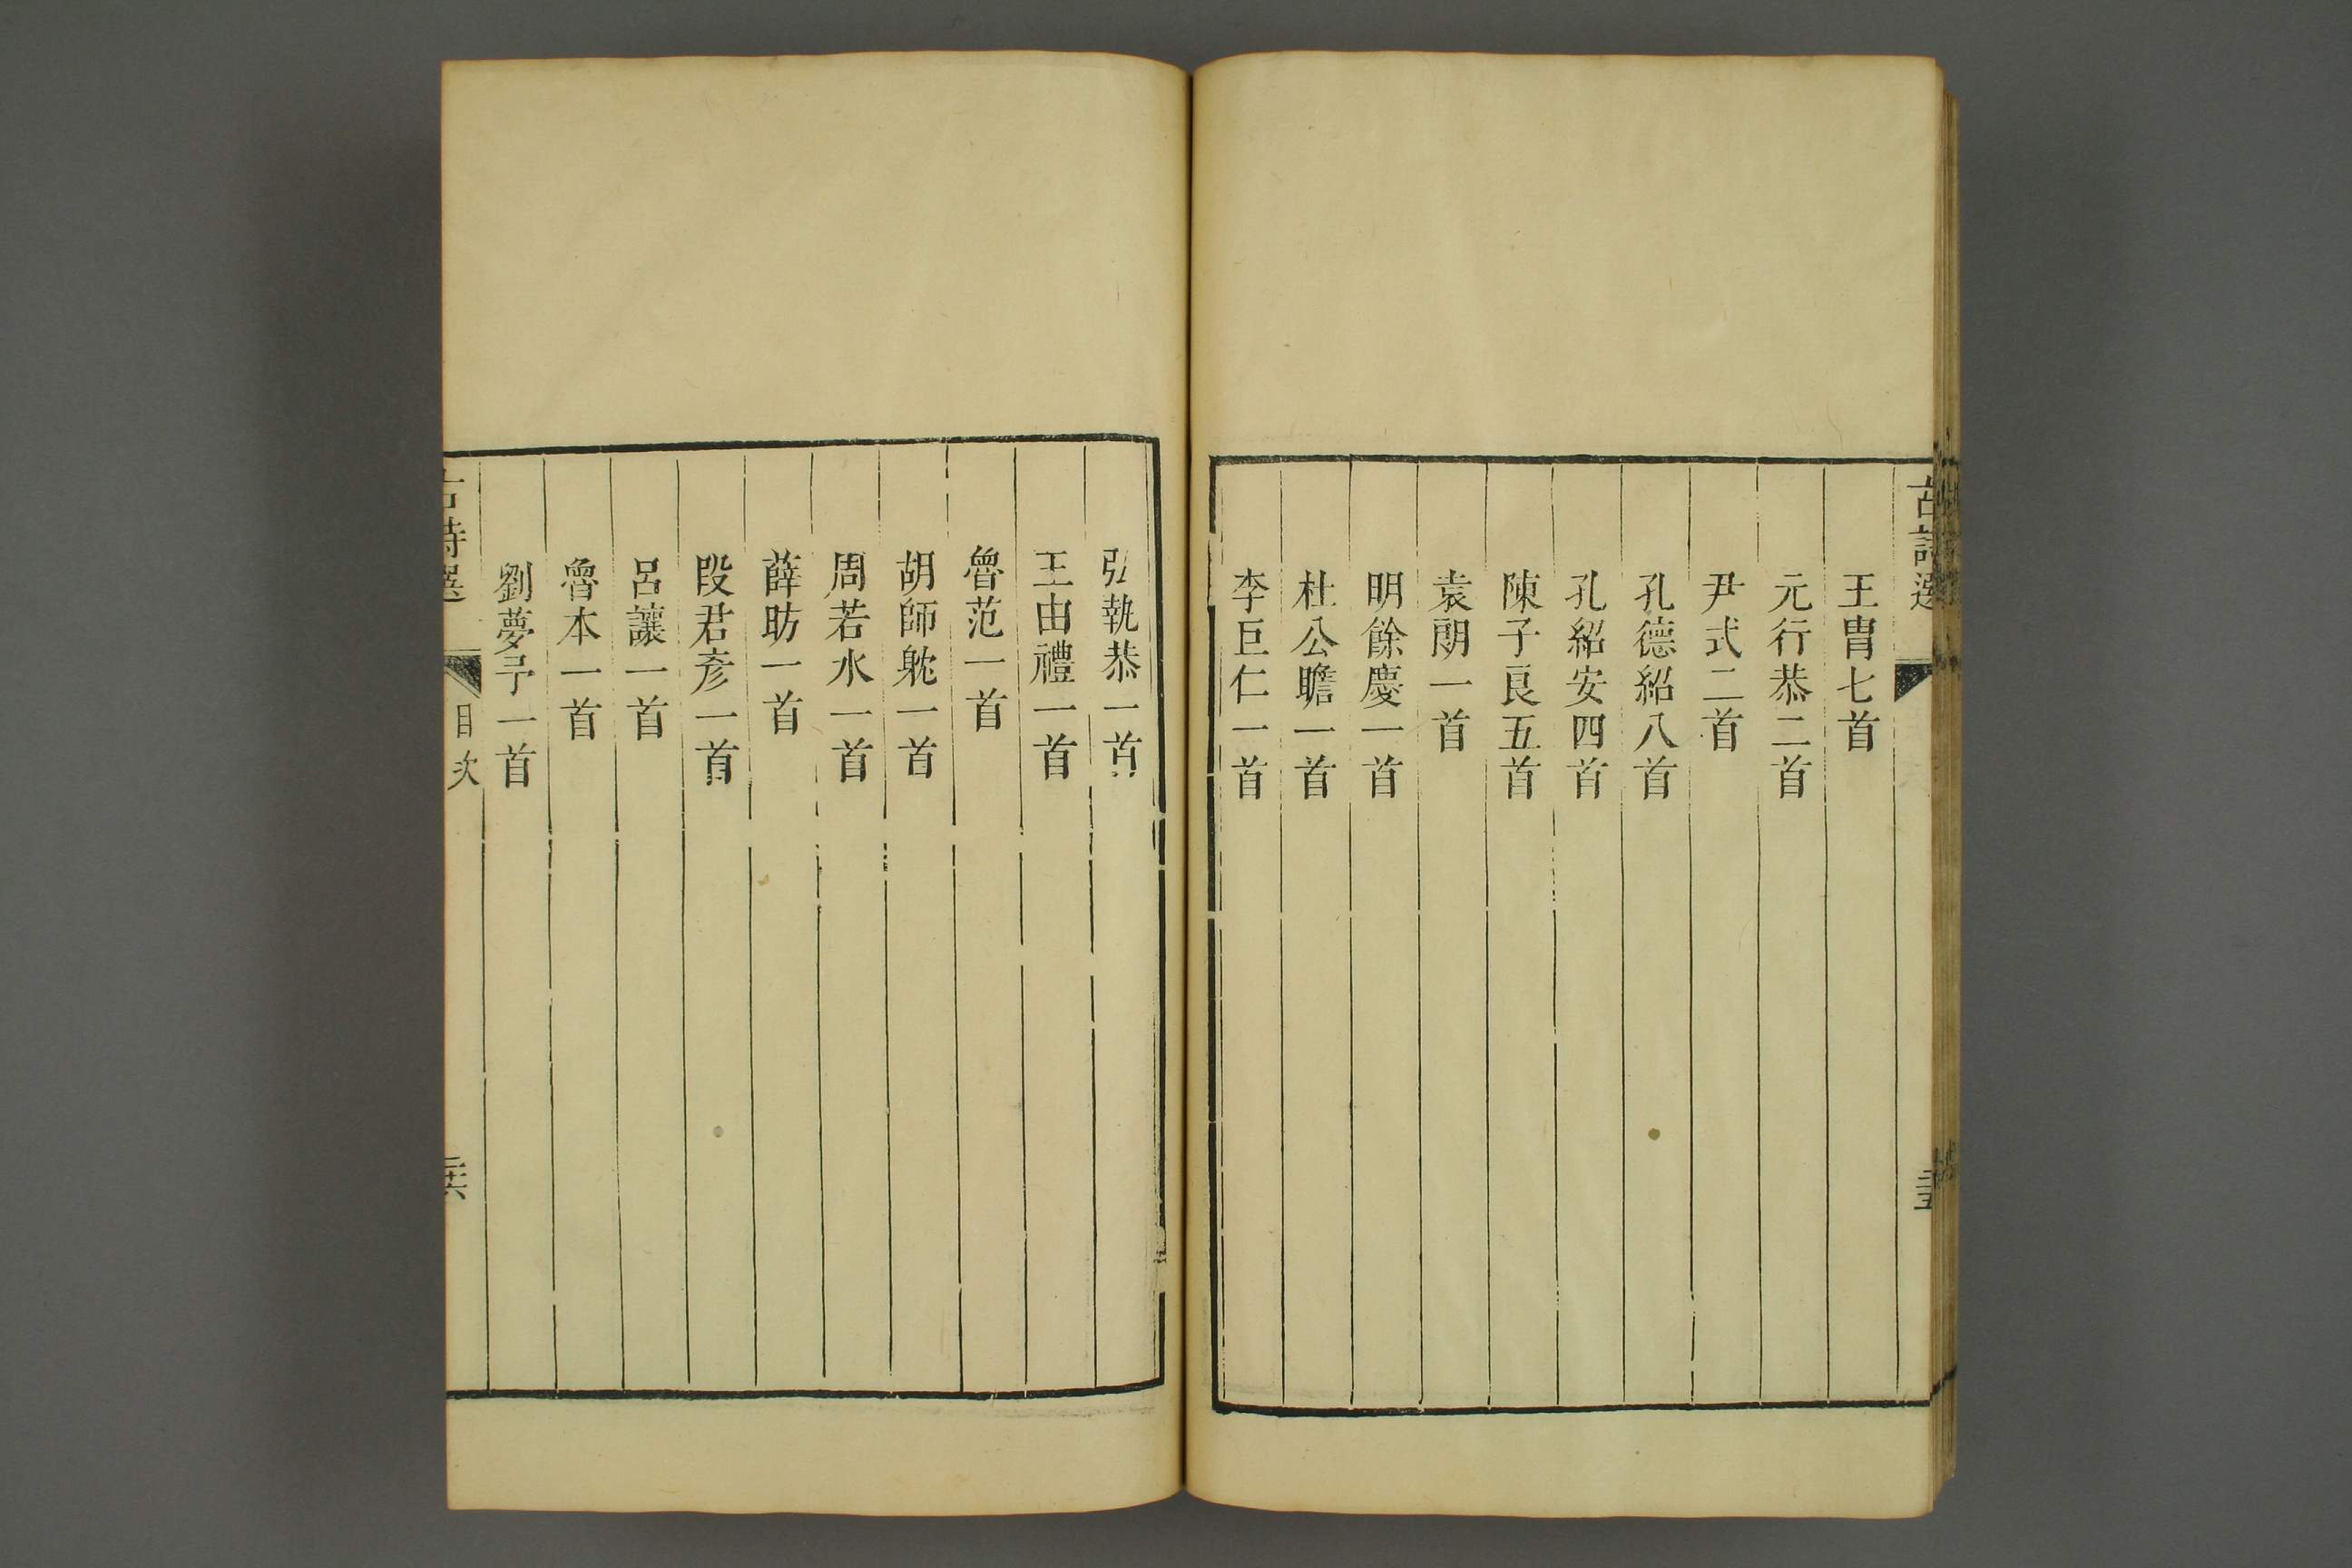 古詩選
王胄七首
元行恭二首
尹式二首
孔德紹八首
孔紹安四首
陳子良五首
袁朗一首
明餘慶一首
杜公瞻一首
李巨仁一首
弘執恭一首
王由禮一首
魯范一首
胡師躭一首
周若水一首
薛昉一首
段君彥一首
呂讓一首
魯本一首
劉夢予一首
古詩選 目次